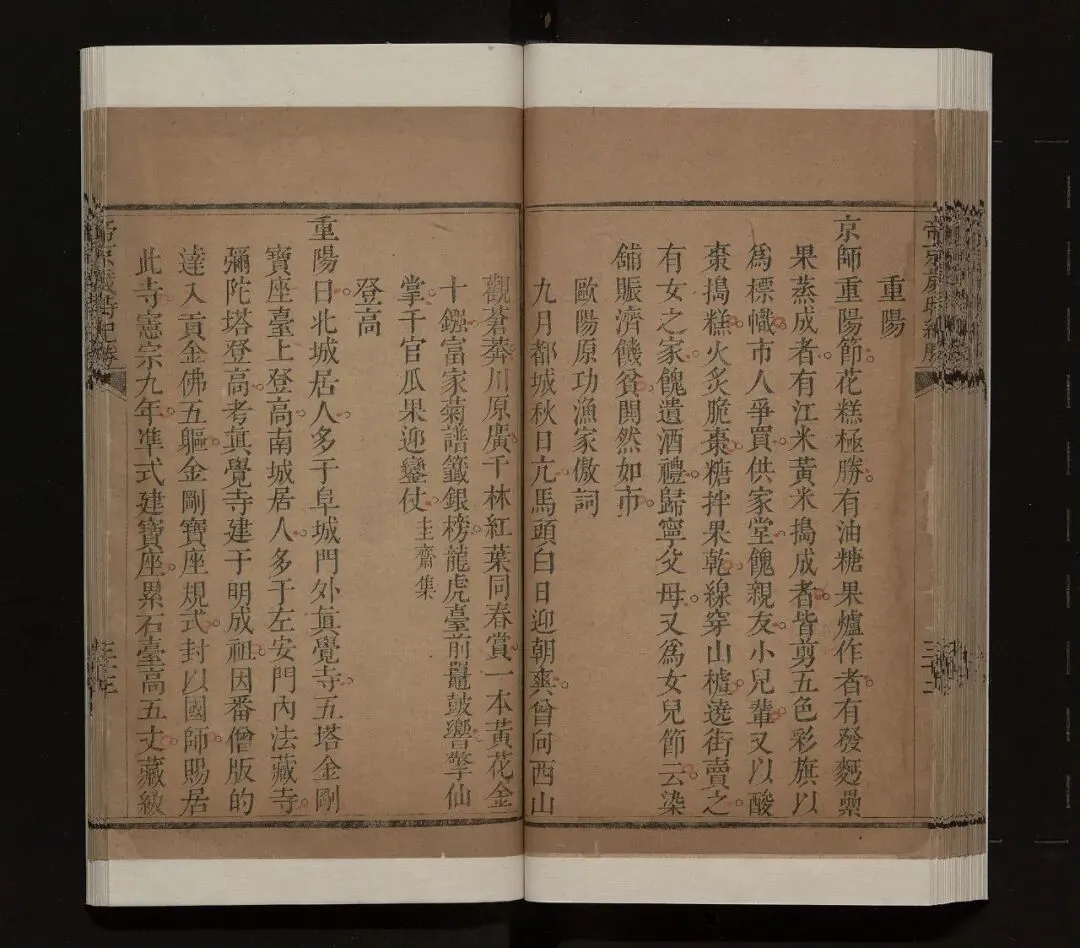 重陽
京師重陽節花糕極勝有油糖果爐作者有發麪纍
果蒸成者有江米黃米搗成者皆剪五色彩旗以
爲標幟市人爭買供家堂餽親友小兒輩又以酸
棗搗糕火炙脆棗糖拌果乾線穿山樝遶街賣之
有女之家餽遺酒禮歸寧父母又爲女兒節云染
舖賑濟饑貧鬨然如市
歐陽原功漁家傲詞
九月都城秋日亢馬頭白日迎朝爽曾向西山
觀蒼莽川原廣千林紅葉同春賞一本黃花金
十鏹富家菊譜籤銀榜龍虎臺前鼉鼓響擎仙
掌千官瓜果迎鑾仗圭齋集
登高
重陽日北城居人多于阜城門外眞覺寺五塔金剛
寶座臺上登高南城居人多于左安門內法藏寺
彌陀塔登高考眞覺寺建于明成祖因番僧版的
達入貢金佛五軀金剛寶座規式封以國師賜居
此寺憲宗九年準式建寶座累石臺高五丈藏級